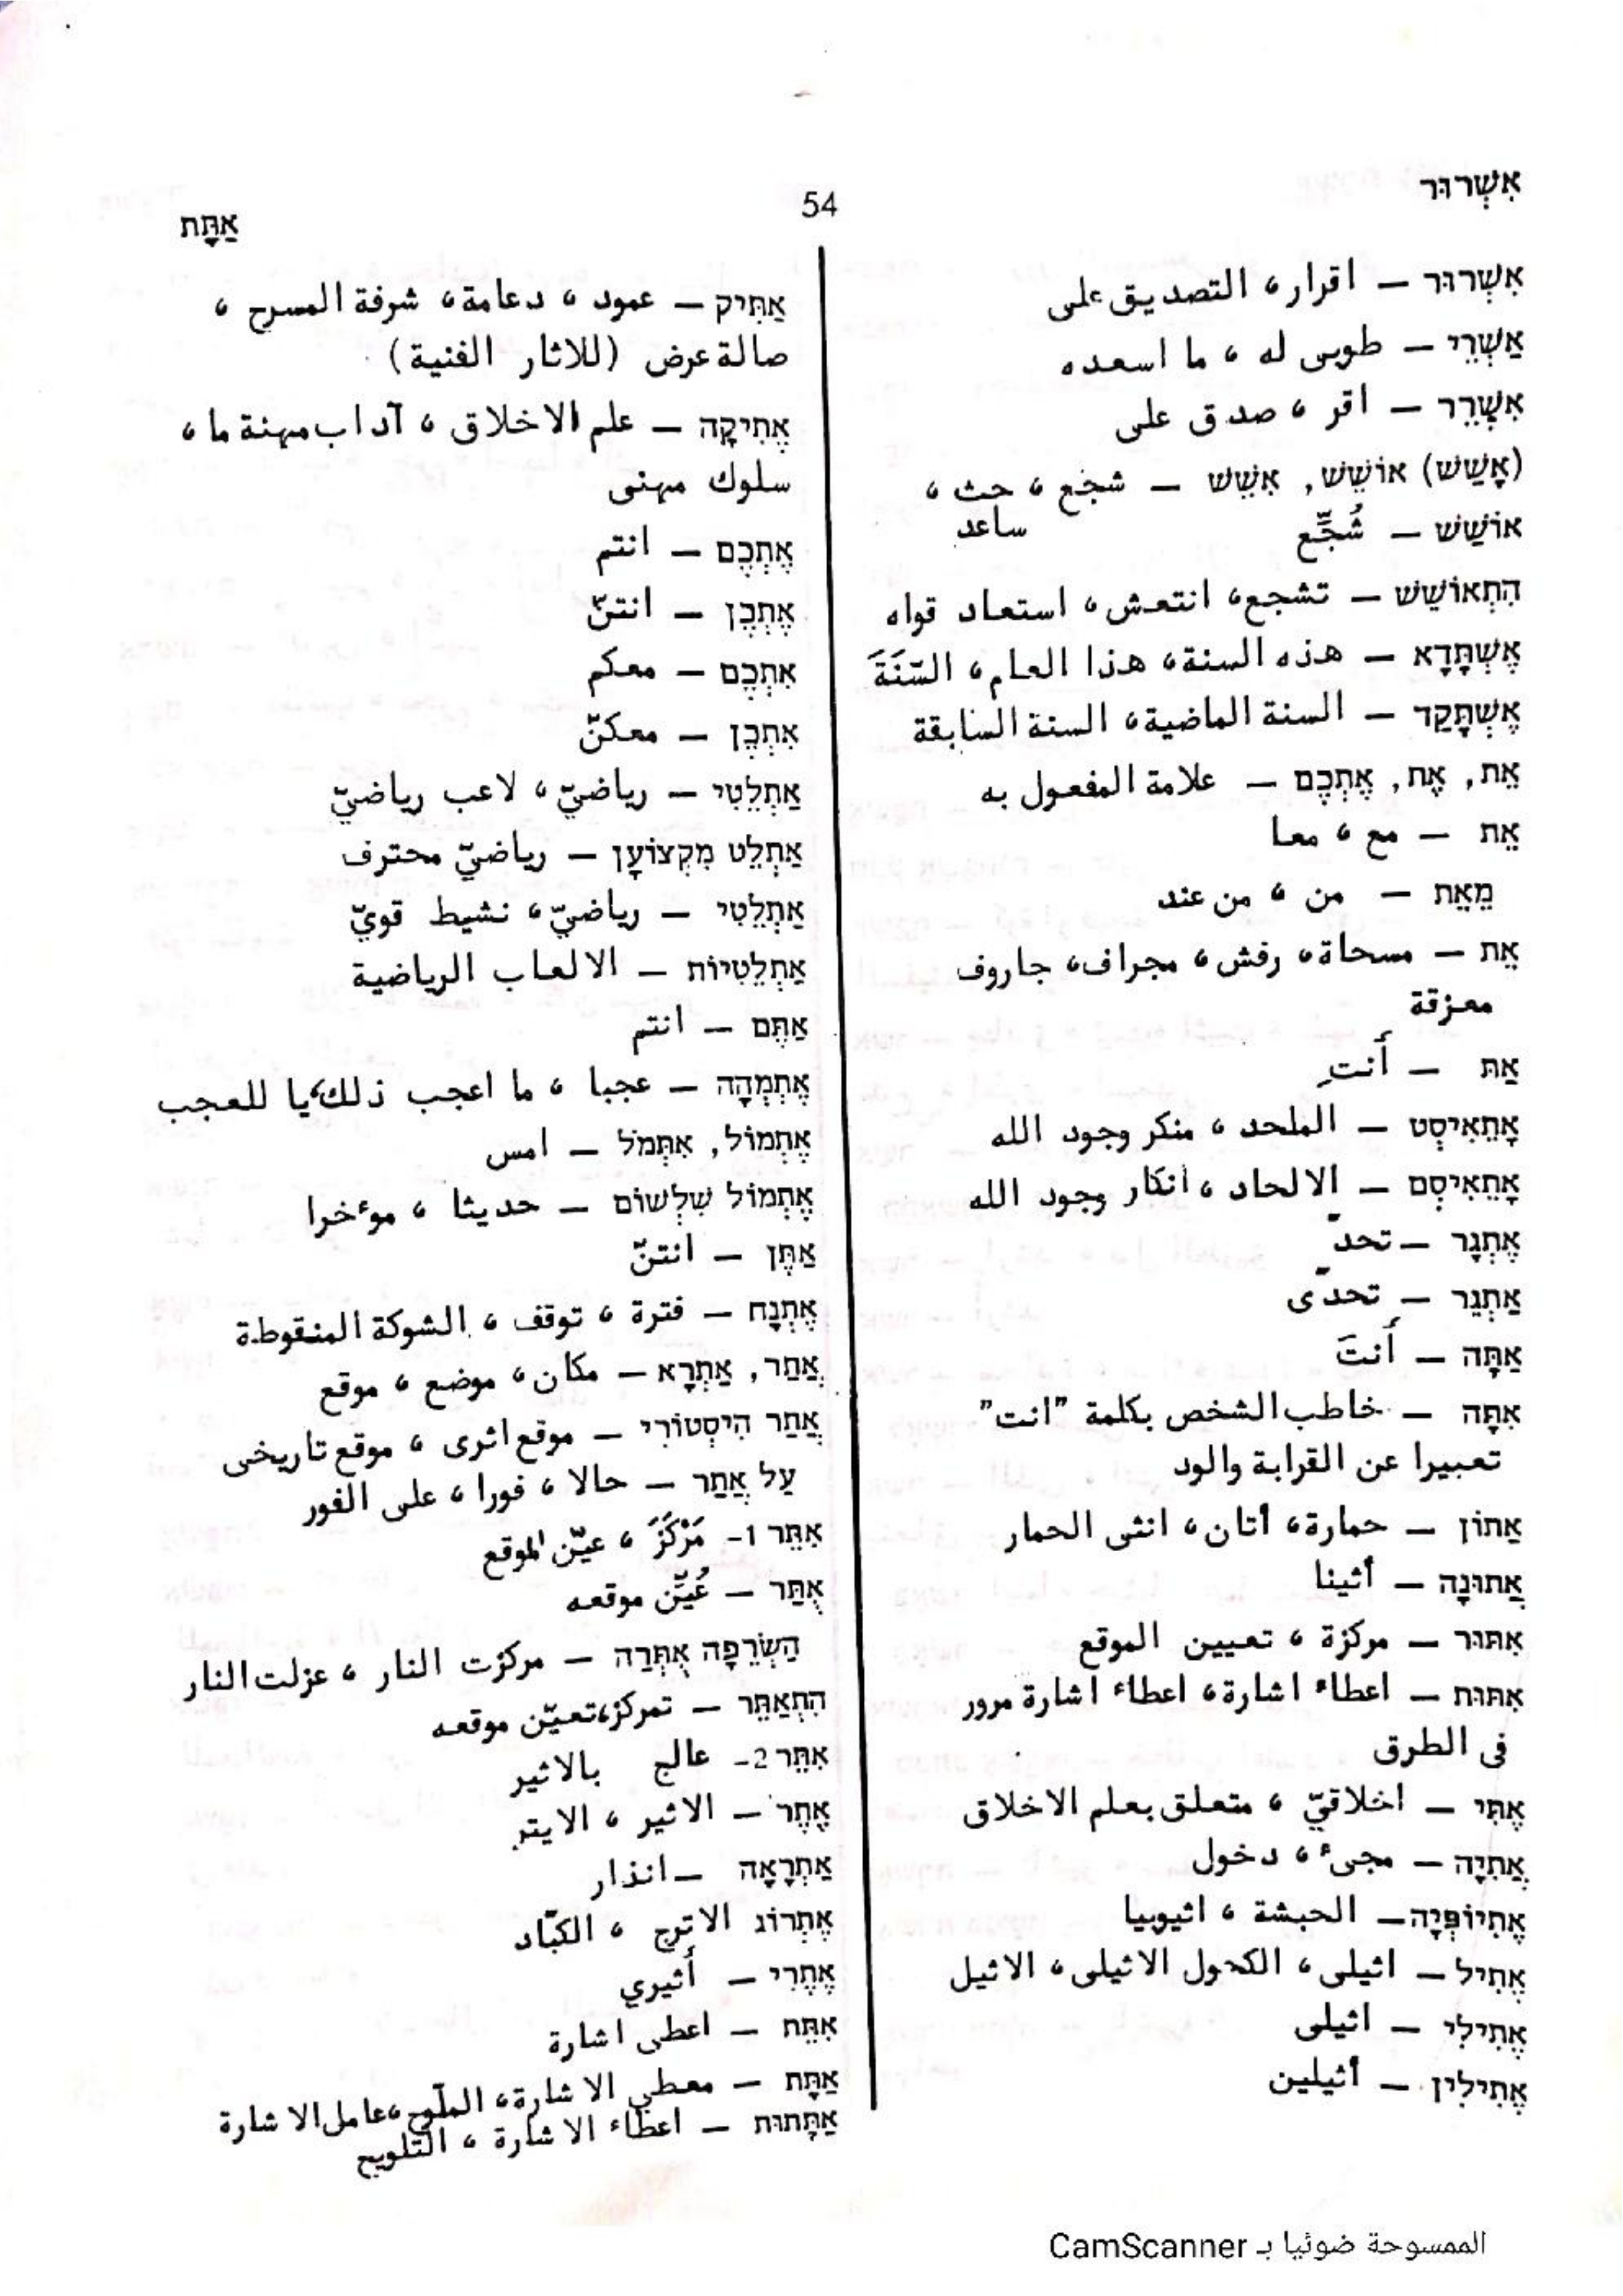 אִשְׁרוּר
54
אַתָּת
אִשְׁרוּר — اقرار، التصديق على
אַשְׁרֵי — طوبى له، ما اسعده
אִשְׁרֵר — اقر، صدق على
(אָשַׁשׁ) אוֹשֵׁשׁ, אִשֵּׁשׁ — شجع، حث،
ساعد
אוֹשַׁשׁ — شُجِّع
הִתְאוֹשֵׁשׁ — تشجع، انتعش، استعاد قواه
אֶשְׁתָּדָא — هذه السنة، هذا العام، السّنَةَ
אֶשְׁתָּקַד — السنة الماضية، السنة السابقة
אֵת, אֶת, אֶתְכֶם — علامة المفعول به
אֵת — مع، معا
מֵאֵת — من، من عند
אֵת — مسحاة، رفش، مجراف، جاروف
معزقة
אַתְּ — أَنتِ
אָתֵאִיסְט — الملحد، منكر وجود الله
אָתֵאִיסְם — الالحاد، انكار وجود الله
אֶתְגָר — تحدّ
אִתְגֵּר — تحدّى
אַתָּה — أَنتَ
אִתָּה — خاطب الشخص بكلمة "انت"
تعبيرا عن القرابة والود
אַתּוֹן — حمارة، أتان، انثى الحمار
אֲתוּנָה — أثينا
אִתּוּר — مركزة، تعيين الموقع
אִתּוּת — اعطاء اشارة، اعطاء اشارة مرور
فى الطرق
אֶתִּי — اخلاقيّ، متعلق بعلم الاخلاق
אֲתִיָּה — مجىء، دخول
אֶתִיּוֹפְּיָה — الحبشة، اثيوبيا
אֶתִיל — اثيلى، الكحول الاثيلى، الاثيل
אֶתִילִי — اثيلى
אֶתִילִין — أثيلين
אַתִּיק — عمود، دعامة، شرفة المسرح،
صالة عرض (للاثار الفنية)
אֶתִיקָה — علم الاخلاق، آداب مهنة ما،
سلوك مهنى
אֶתְכֶם — انتم
אֶתְכֶן — انتنّ
אִתְּכֶם — معكم
אִתְּכֶן — معكنّ
אַתְלֵטִי — رياضيّ، لاعب رياضيّ
אַתְלֵט מִקְצוֹעָן — رياضيّ محترف
אַתְלֵטִי — رياضيّ، نشيط قويّ
אַתְלֵטִיוּת — الالعاب الرياضية
אַתֶּם — انتم
אֶתְמְהָה — عجبا، ما اعجب ذلك، يا للعجب
אֶתְמוֹל, אִתְּמֹל — امس
אֶתְמוֹל שִׁלְשׁוֹם — حديثا، موءخرا
אַתֶּן — انتنّ
אֶתְנָח — فترة، توقف، الشوكة المنقوطة
אֲתַר, אַתְרָא — مكان، موضع، موقع
אֲתַר הִיסְטוֹרִי — موقع اثرى، موقع تاريخى
עַל אֲתַר — حالا، فورا، على الفور
אִתֵּר 1- مَرْكَزَ، عيّن الموقع
אֻתַּר — عُيِّن موقعه
הַשְּׂרֵפָה אֻתְּרָה — مركزت النار، عزلت النار
הִתְאַתֵּר — تمركز، تعيّن موقعه
אִתֵּר 2- عالج بالاثير
אֶתֶר — الاثير، الايتر
אַתְרָאָה — انذار
אֶתְרוֹג الاترج، الكبّاد
אֶתֶרִי — أَثيري
אִתֵּת — اعطى اشارة
אַתָּת — معطي الاشارة، الملّوح، عامل الاشارة
אַתָּתוּת — اعطاء الاشارة، التلويح
الممسوحة ضوئيا بـ CamScanner